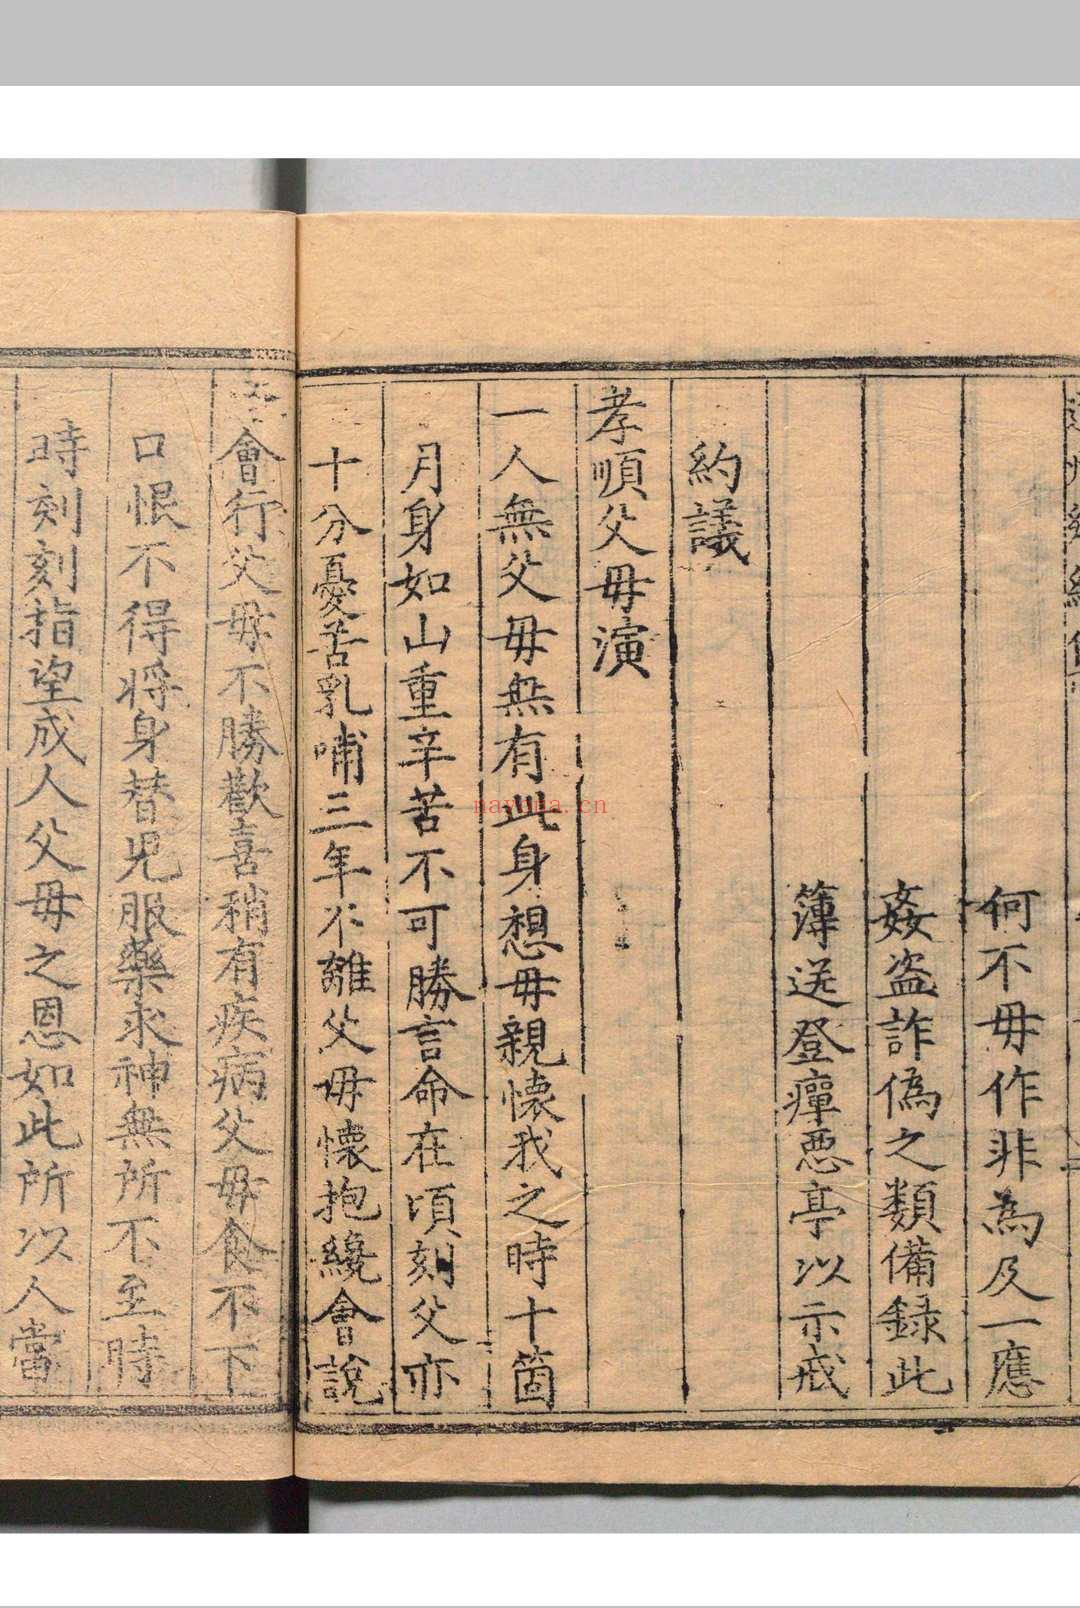 何不毋作非為及一應
姦盗詐偽之類備録此
簿送登癉惡亭以示戒
約議
孝順父母演
一人無父母無有此身想母親懷我之時十箇
月身如山重辛苦不可勝言命在頃刻父亦
十分憂苦乳哺三年不離父母懷抱纔會説
會行父母不勝歡喜稍有疾病父母食不下
口恨不得將身替児服藥求神無所不至時
時刻刻指望成人父母之恩如此所以人當
nayona.cn